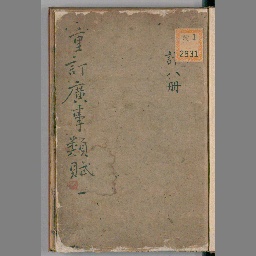 重訂廣事類賦
一
計八冊
2831